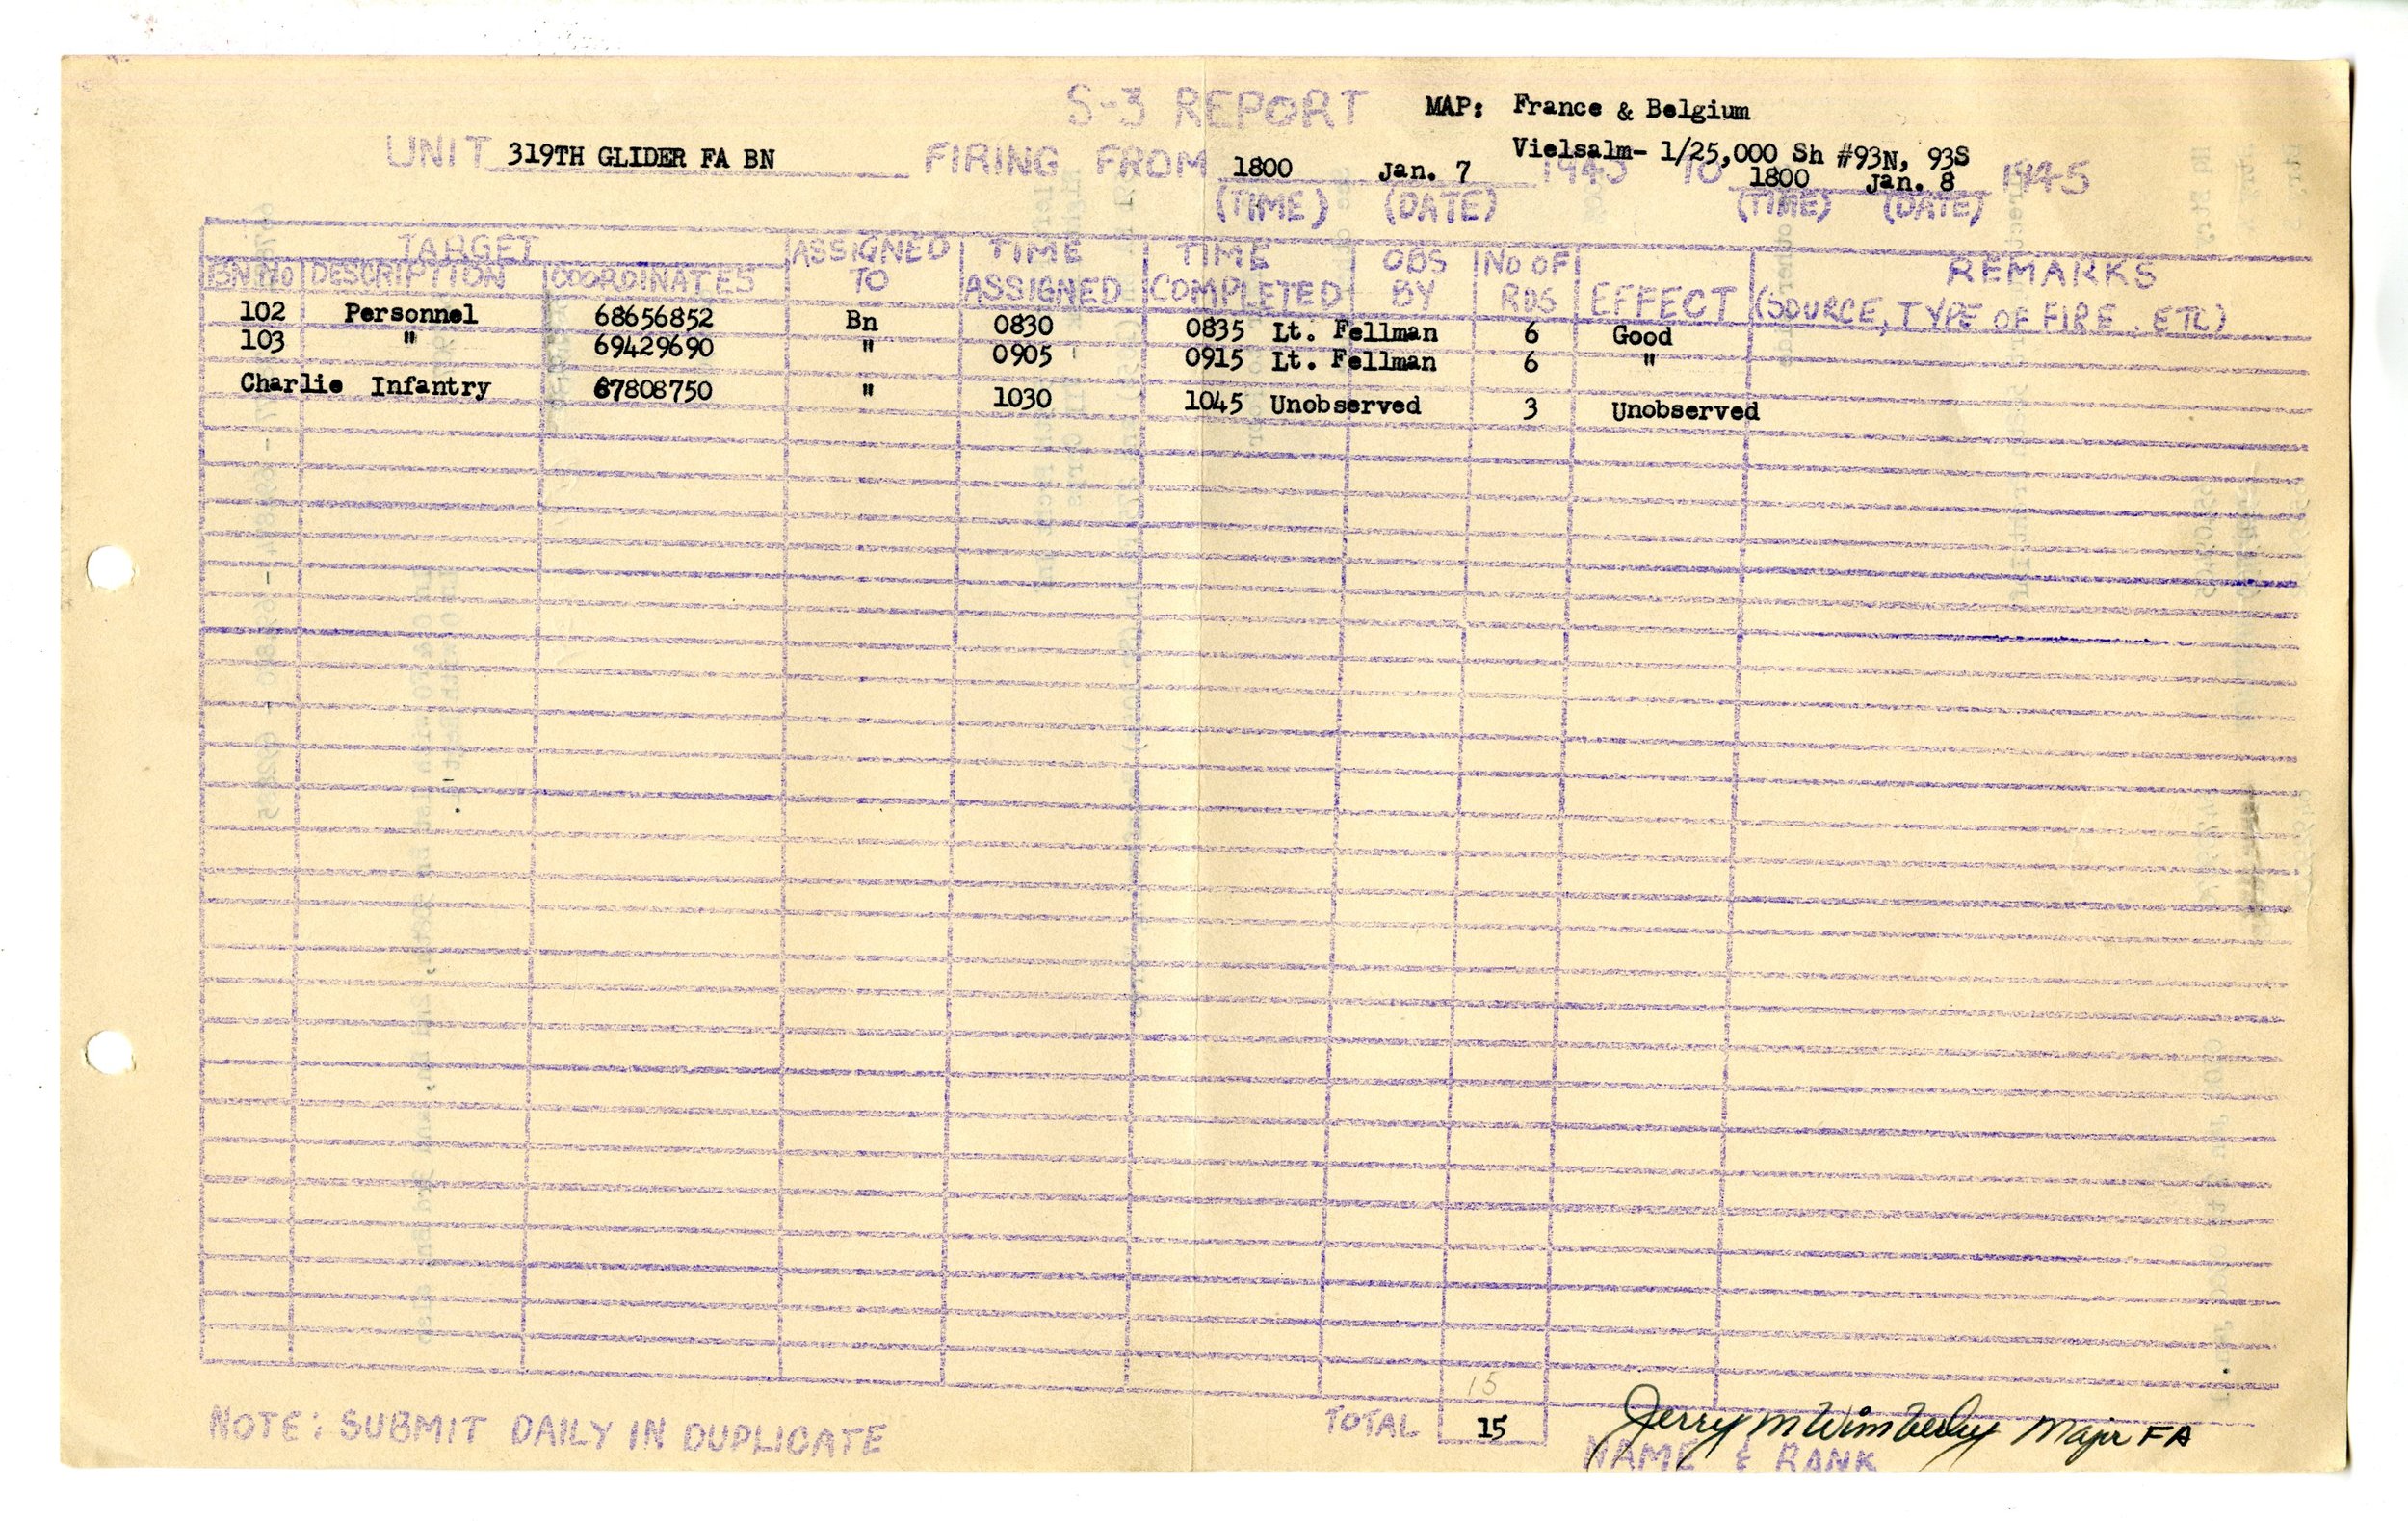 S-3 REPORT MAP: France & Belgium
Vielsalm- 1/25,000 Sh #93N, 93S
UNIT 319TH GLIDER FA BN FIRING FROM 1800 Jan. 7 1945 TO 1800 Jan. 8 1945
(TIME) (DATE) (TIME) (DATE)
TARGET ASSIGNED TO TIME ASSIGNED TIME COMPLETED OBS BY NO OF RDS EFFECT REMARKS
BN NO DESCRIPTION COORDINATES (SOURCE, TYPE OF FIRE, ETC)
102 Personnel 68656852 Bn 0830 0835 Lt. Fellman 6 Good
103 " 69429690 " 0905 0915 Lt. Fellman 6 "
Charlie Infantry 67808750 " 1030 1045 Unobserved 3 Unobserved
15
NOTE: SUBMIT DAILY IN DUPLICATE TOTAL 15 Jerry M Wimberley Major FA
NAME & RANK